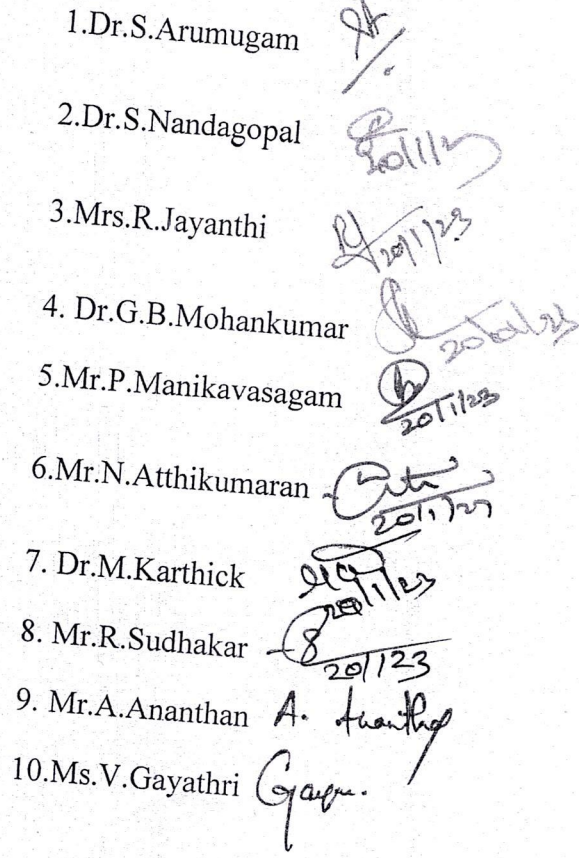 1.Dr.S.Arumugam
2.Dr.S.Nandagopal 20/1/23
3.Mrs.R.Jayanthi 20/1/23
4. Dr.G.B.Mohankumar 20/01/23
5.Mr.P.Manikavasagam 20/1/23
6.Mr.N.Atthikumaran 20/1/23
7. Dr.M.Karthick 20/1/23
8. Mr.R.Sudhakar 20/1/23
9. Mr.A.Ananthan A.
10.Ms.V.Gayathri